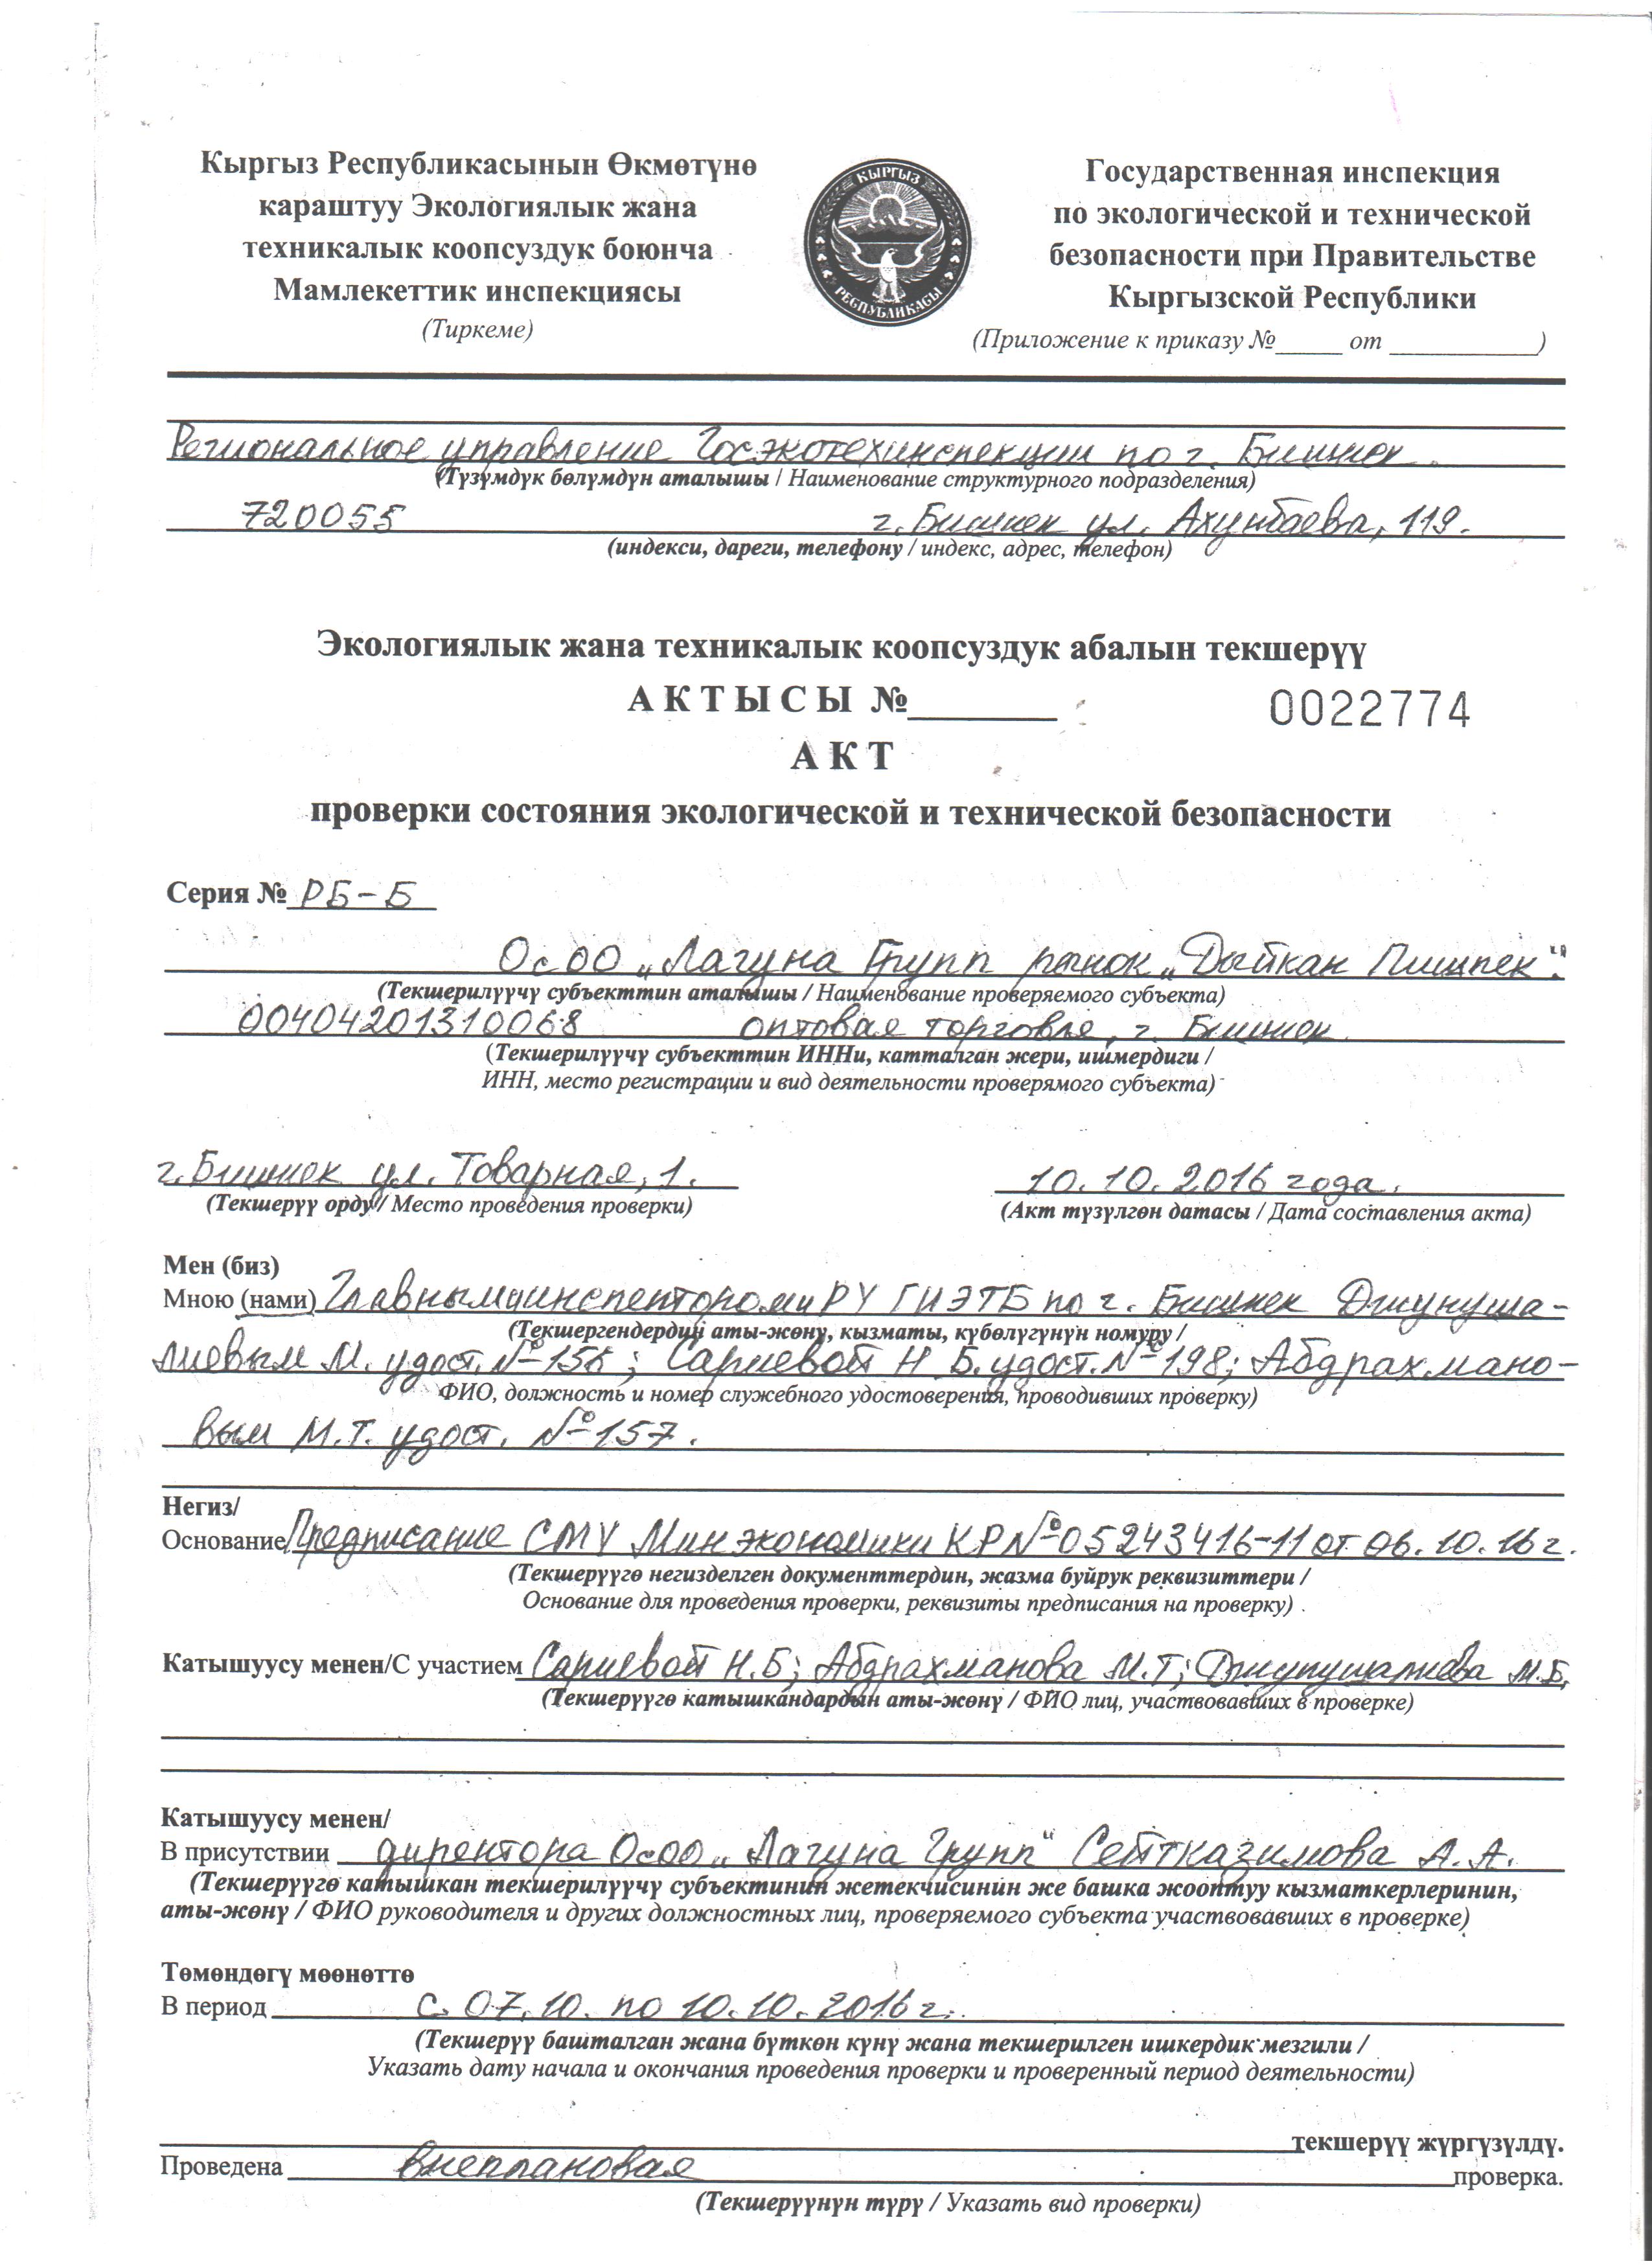 Кыргыз Республикасынын Өкмөтүнө
караштуу Экологиялык жана
техникалык коопсуздук боюнча
Мамлекеттик инспекциясы
(Тиркеме)
КЫРГЫЗ
РЕСПУБЛИКАСЫ
Государственная инспекция
по экологической и технической
безопасности при Правительстве
Кыргызской Республики
(Приложение к приказу №_____ от ___________)
Региональное управление Госэкотехинспекции по г. Бишкек.
(Түзүмдүк бөлүмдүн аталышы / Наименование структурного подразделения)
720055 г. Бишкек ул. Ахунбаева, 119.
(индекси, дареги, телефону / индекс, адрес, телефон)
Экологиялык жана техникалык коопсуздук абалын текшерүү
АКТЫСЫ №________ 0022774
АКТ
проверки состояния экологической и технической безопасности
Серия № РБ-Б
ОсОО „Лагуна Групп рынок „Дыйкан Пишпек".
(Текшерилүүчү субъекттин аталышы / Наименование проверяемого субъекта)
00404201310068 оптовая торговля, г. Бишкек
(Текшерилүүчү субъекттин ИННи, катталган жери, ишмердиги /
ИНН, место регистрации и вид деятельности проверямого субъекта)
г. Бишкек ул. Товарная, 1. 10.10.2016 года.
(Текшерүү орду / Место проведения проверки) (Акт түзүлгөн датасы / Дата составления акта)
Мен (биз)
Мною (нами) Главными инспекторами РУ ГИЭТБ по г. Бишкек Джунуша-
(Текшергендердин аты-жөнү, кызматы, күбөлүгүнүн номуру /
лиевым М. удост. №156; Сариевой Н Б. удост. №198; Абдрахмано-
ФИО, должность и номер служебного удостоверения, проводивших проверку)
вым М.Т. удост. №157.
Негиз/
Основание Предписание СМУ Минэкономики КР №05243416-11 от 06.10.16г.
(Текшерүүгө негизделген документтердин, жазма буйрук реквизиттери /
Основание для проведения проверки, реквизиты предписания на проверку)
Катышуусу менен/С участием Сариевой Н.Б; Абдрахманова М.Т; Джунушалиева М.Б.
(Текшерүүгө катышкандардын аты-жөнү / ФИО лиц, участвовавших в проверке)
Катышуусу менен/
В присутствии директора ОсОО „Лагуна Групп" Сейтказимова А.А.
(Текшерүүгө катышкан текшерилүүчү субъектинин жетекчисинин же башка жооптуу кызматкерлеринин,
аты-жөнү / ФИО руководителя и других должностных лиц, проверяемого субъекта участвовавших в проверке)
Төмөндөгү мөөнөттө
В период с. 07.10. по 10.10.2016г.
(Текшерүү башталган жана бүткөн күнү жана текшерилген ишкердик мезгили /
Указать дату начала и окончания проведения проверки и проверенный период деятельности)
текшерүү жүргүзүлдү.
Проведена внеплановая проверка.
(Текшерүүнүн түрү / Указать вид проверки)